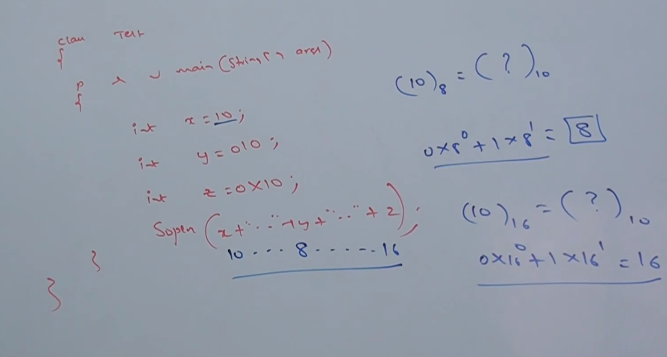 class Test
{
p s v main(String[] args)
{
int x = 10;
int y = 010;
int z = 0X10;
Sopln(x+"..."+y+"..."+z);
10...8.....16
}
}
(10)8 = (?)10
0×8^0 + 1×8^1 = 8
(10)16 = (?)10
0×16^0 + 1×16^1 = 16